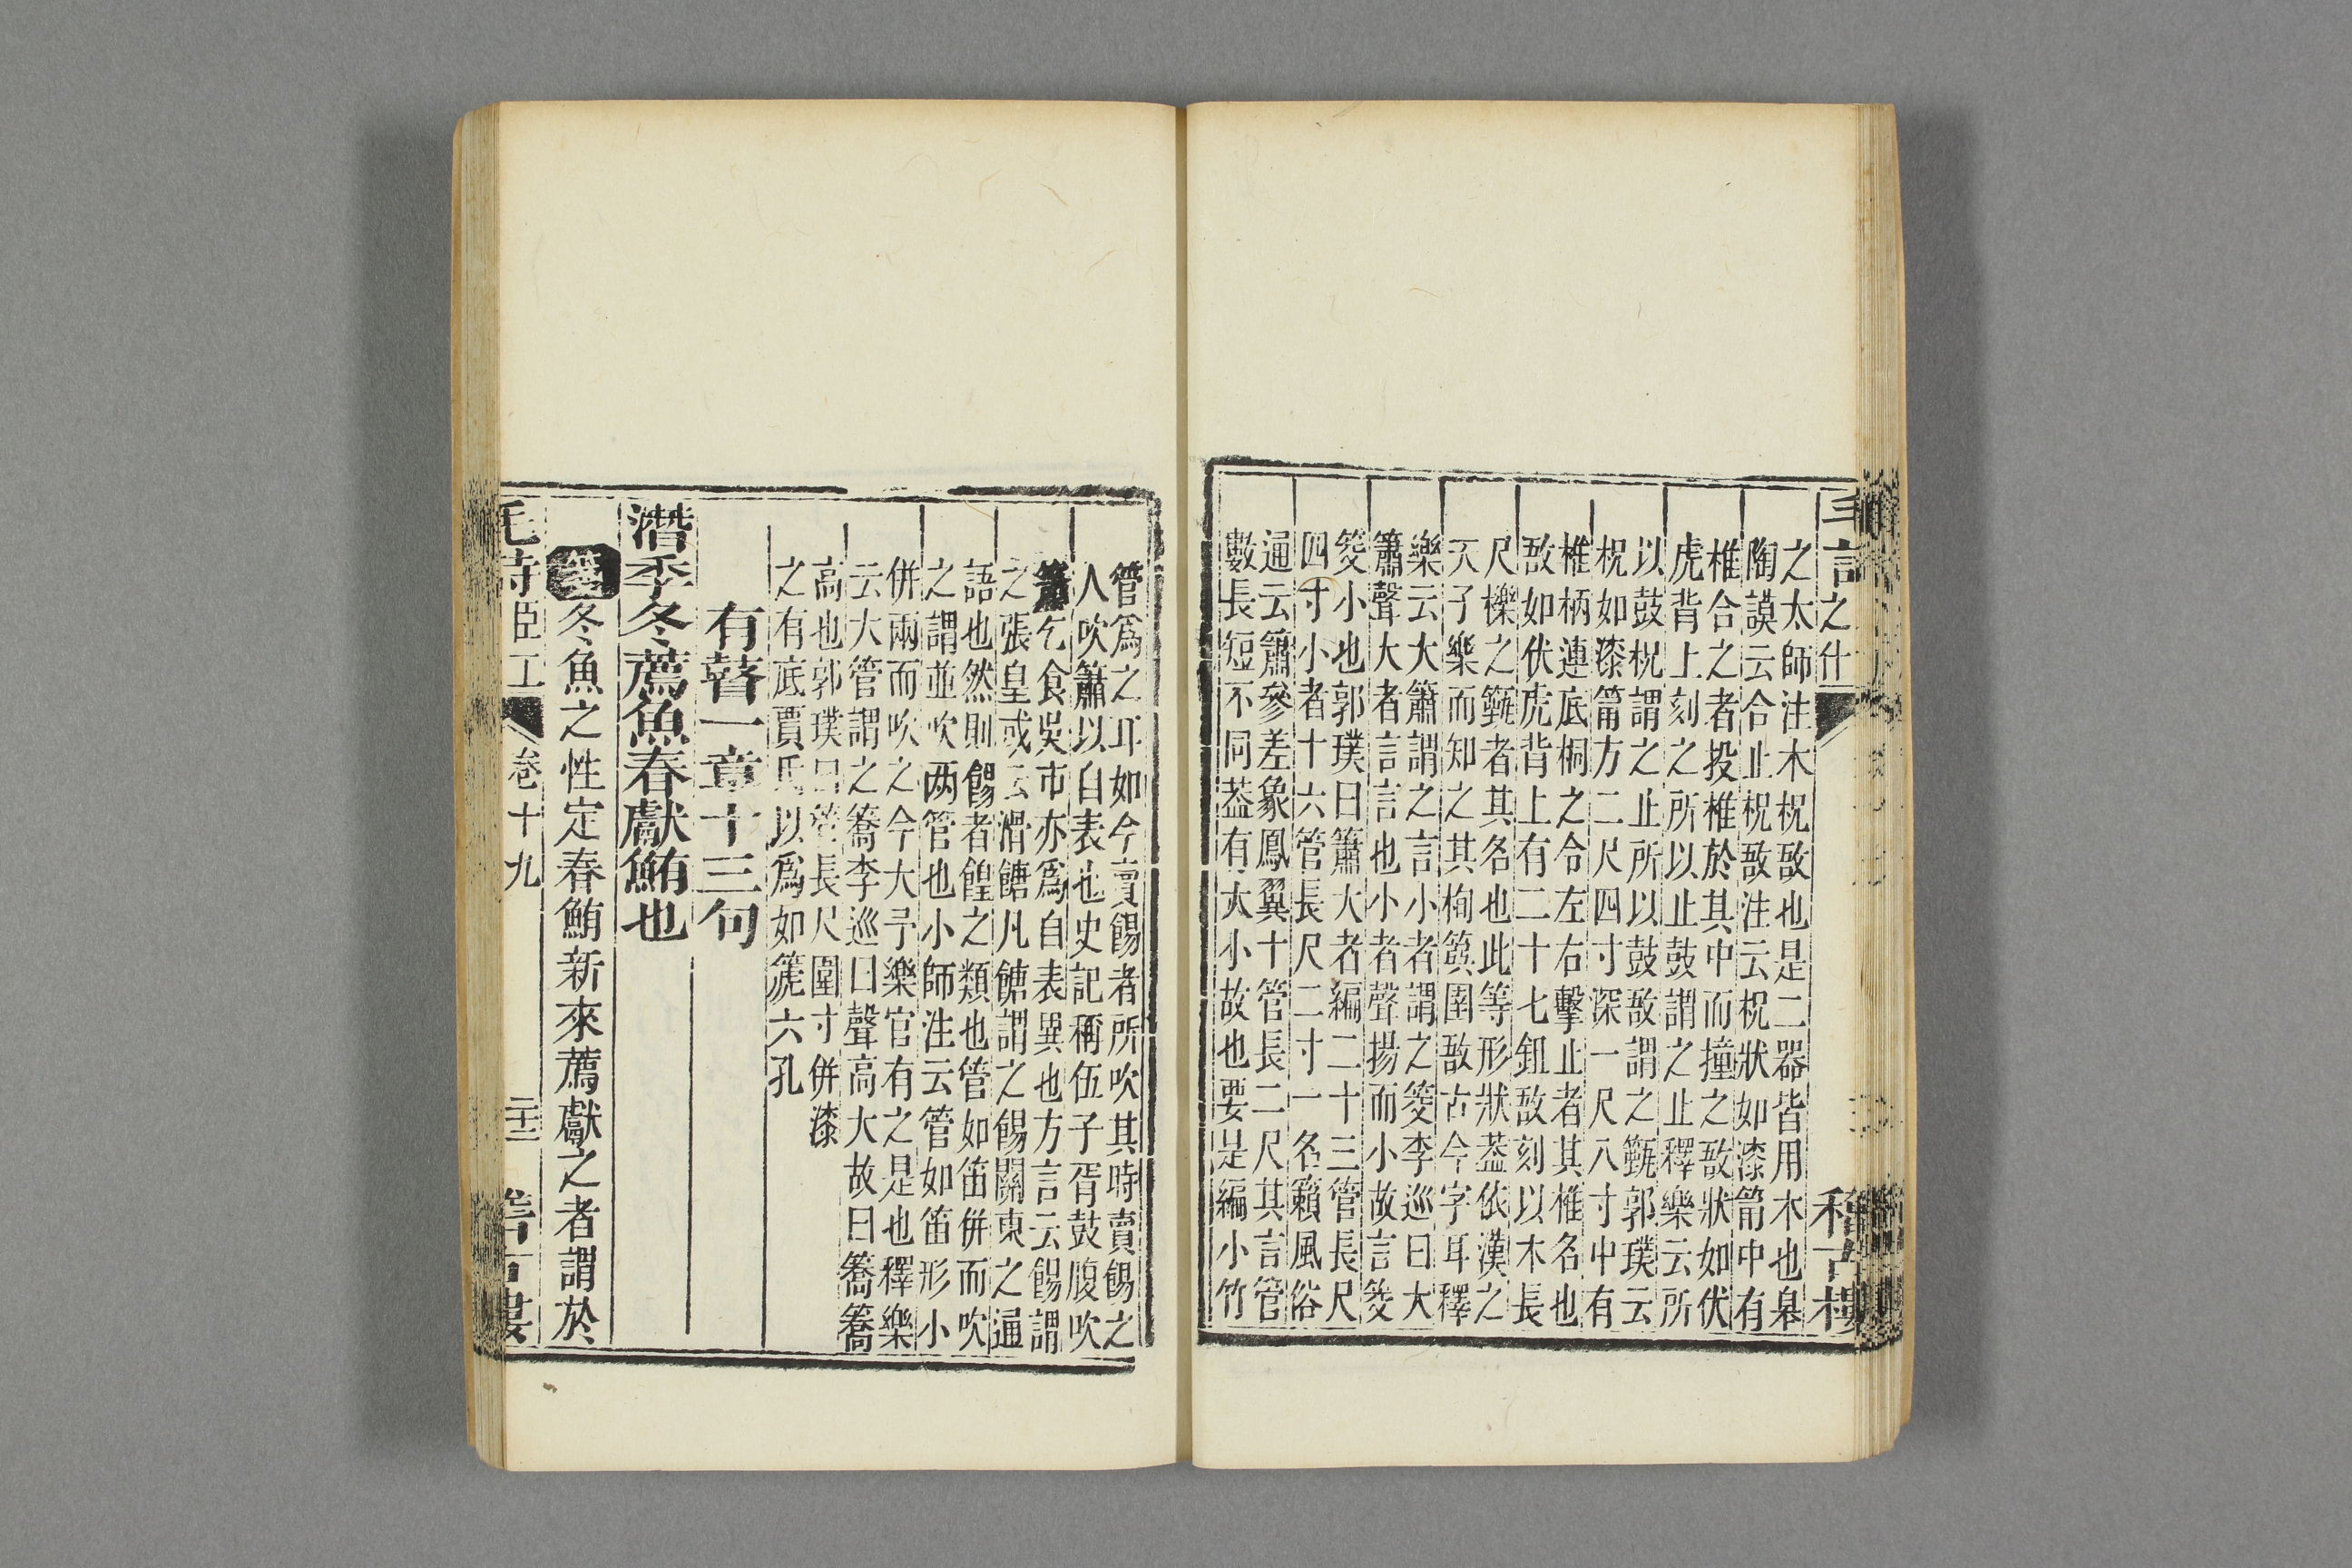 毛詩之什 稽古樓
之太師注木柷敔也是二器皆用木也皋
陶謨云合止柷敔注云柷狀如漆筩中有
椎合之者投椎於其中而撞之敔狀如伏
虎背上刻之所以止鼓謂之止釋樂云所
以鼓柷謂之止所以鼓敔謂之籈郭璞云
柷如漆筩方二尺四寸深一尺八寸中有
椎柄連底桐之令左右擊止者其椎名也
敔如伏虎背上有二十七鉏敔刻以木長
尺櫟之籈者其名也此等形狀葢依漢之
天子樂而知之其栒簨圉敔古今字耳釋
樂云大簫謂之言小者謂之筊李巡曰大
簫聲大者言言也小者聲揚而小故言筊
筊小也郭璞曰簫大者編二十三管長尺
四寸小者十六管長尺二寸一名籟風俗
通云簫參差象鳳翼十管長二尺其言管
數長短不同葢有大小故也要是編小竹
管爲之耳如今賣餳者所吹其時賣餳之
人吹簫以自表也史記稱伍子胥鼓腹吹
簫乞食吳市亦爲自表異也方言云餳謂
之張皇或云滑餹凡餹謂之餳關東之通
語也然則餳者餭之類也管如笛併而吹
之謂並吹两管也小師注云管如笛形小
併兩而吹之今大予樂官有之是也釋樂
云大管謂之簥李巡曰聲高大故曰簥簥
高也郭璞曰管長尺圍寸併漆
之有底賈氏以爲如篪六孔
有瞽一章十三句
潛季冬薦魚春獻鮪也
箋冬魚之性定春鮪新來薦獻之者謂於
毛詩臣工 卷十九 二十二 稽古樓